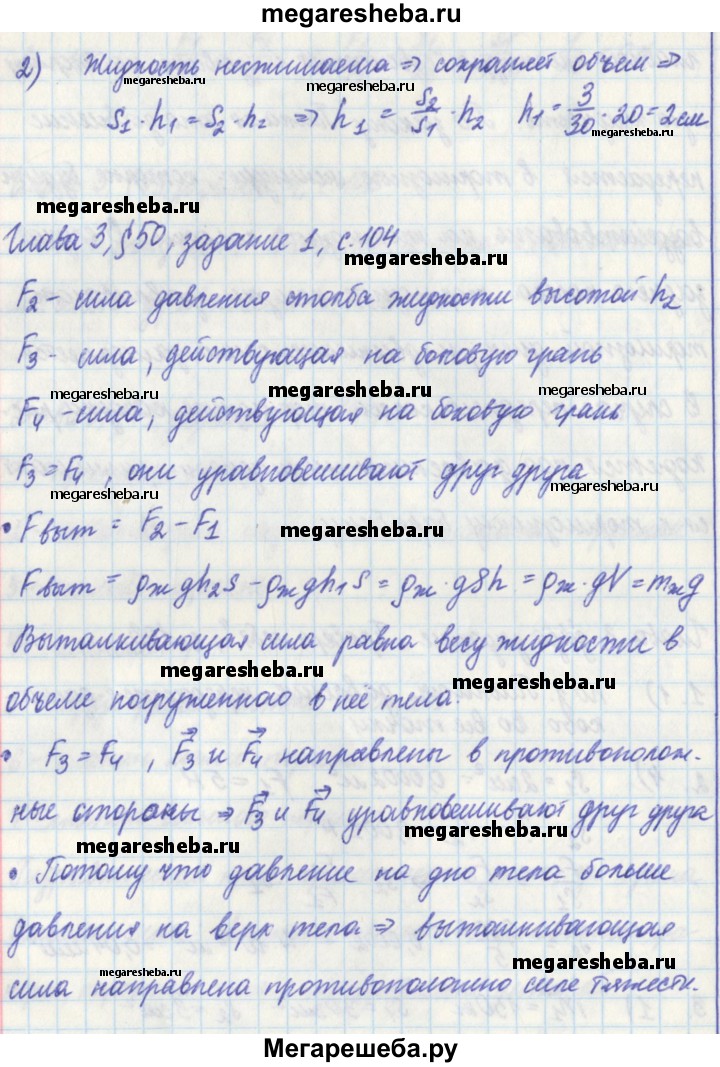 megaresheba.ru
2) Жидкость несжимаема ⇒ сохраняет объем ⇒
megaresheba.ru
megaresheba.ru
S1 · h1 = S2 · h2 ⇒ h1 = S2/S1 · h2 h1 = 3/30 · 20 = 2 см
megaresheba.ru
megaresheba.ru
Глава 3, § 50, задание 1, с. 104
megaresheba.ru
F2 - сила давления столба жидкости высотой h2
F3 - сила, действующая на боковую грань
megaresheba.ru megaresheba.ru megaresheba.ru
F4 - сила, действующая на боковую грань
F3 = F4, они уравновешивают друг друга
megaresheba.ru megaresheba.ru
• Fвыт = F2 - F1
megaresheba.ru
Fвыт = ρж g h2 S - ρж g h1 S = ρж · g S h = ρж · g V = mж g
Выталкивающая сила равна весу жидкости в
megaresheba.ru
объеме погруженного в неё тела.
megaresheba.ru
• F3 = F4, F⃗3 и F⃗4 направлены в противополож-
ные стороны ⇒ F⃗3 и F⃗4 уравновешивают друг друга
megaresheba.ru megaresheba.ru
• Потому что давление на дно тела больше
давления на верх тела ⇒ выталкивающая
megaresheba.ru megaresheba.ru
сила направлена противоположно силе тяжести.
Мегарешеба.ру